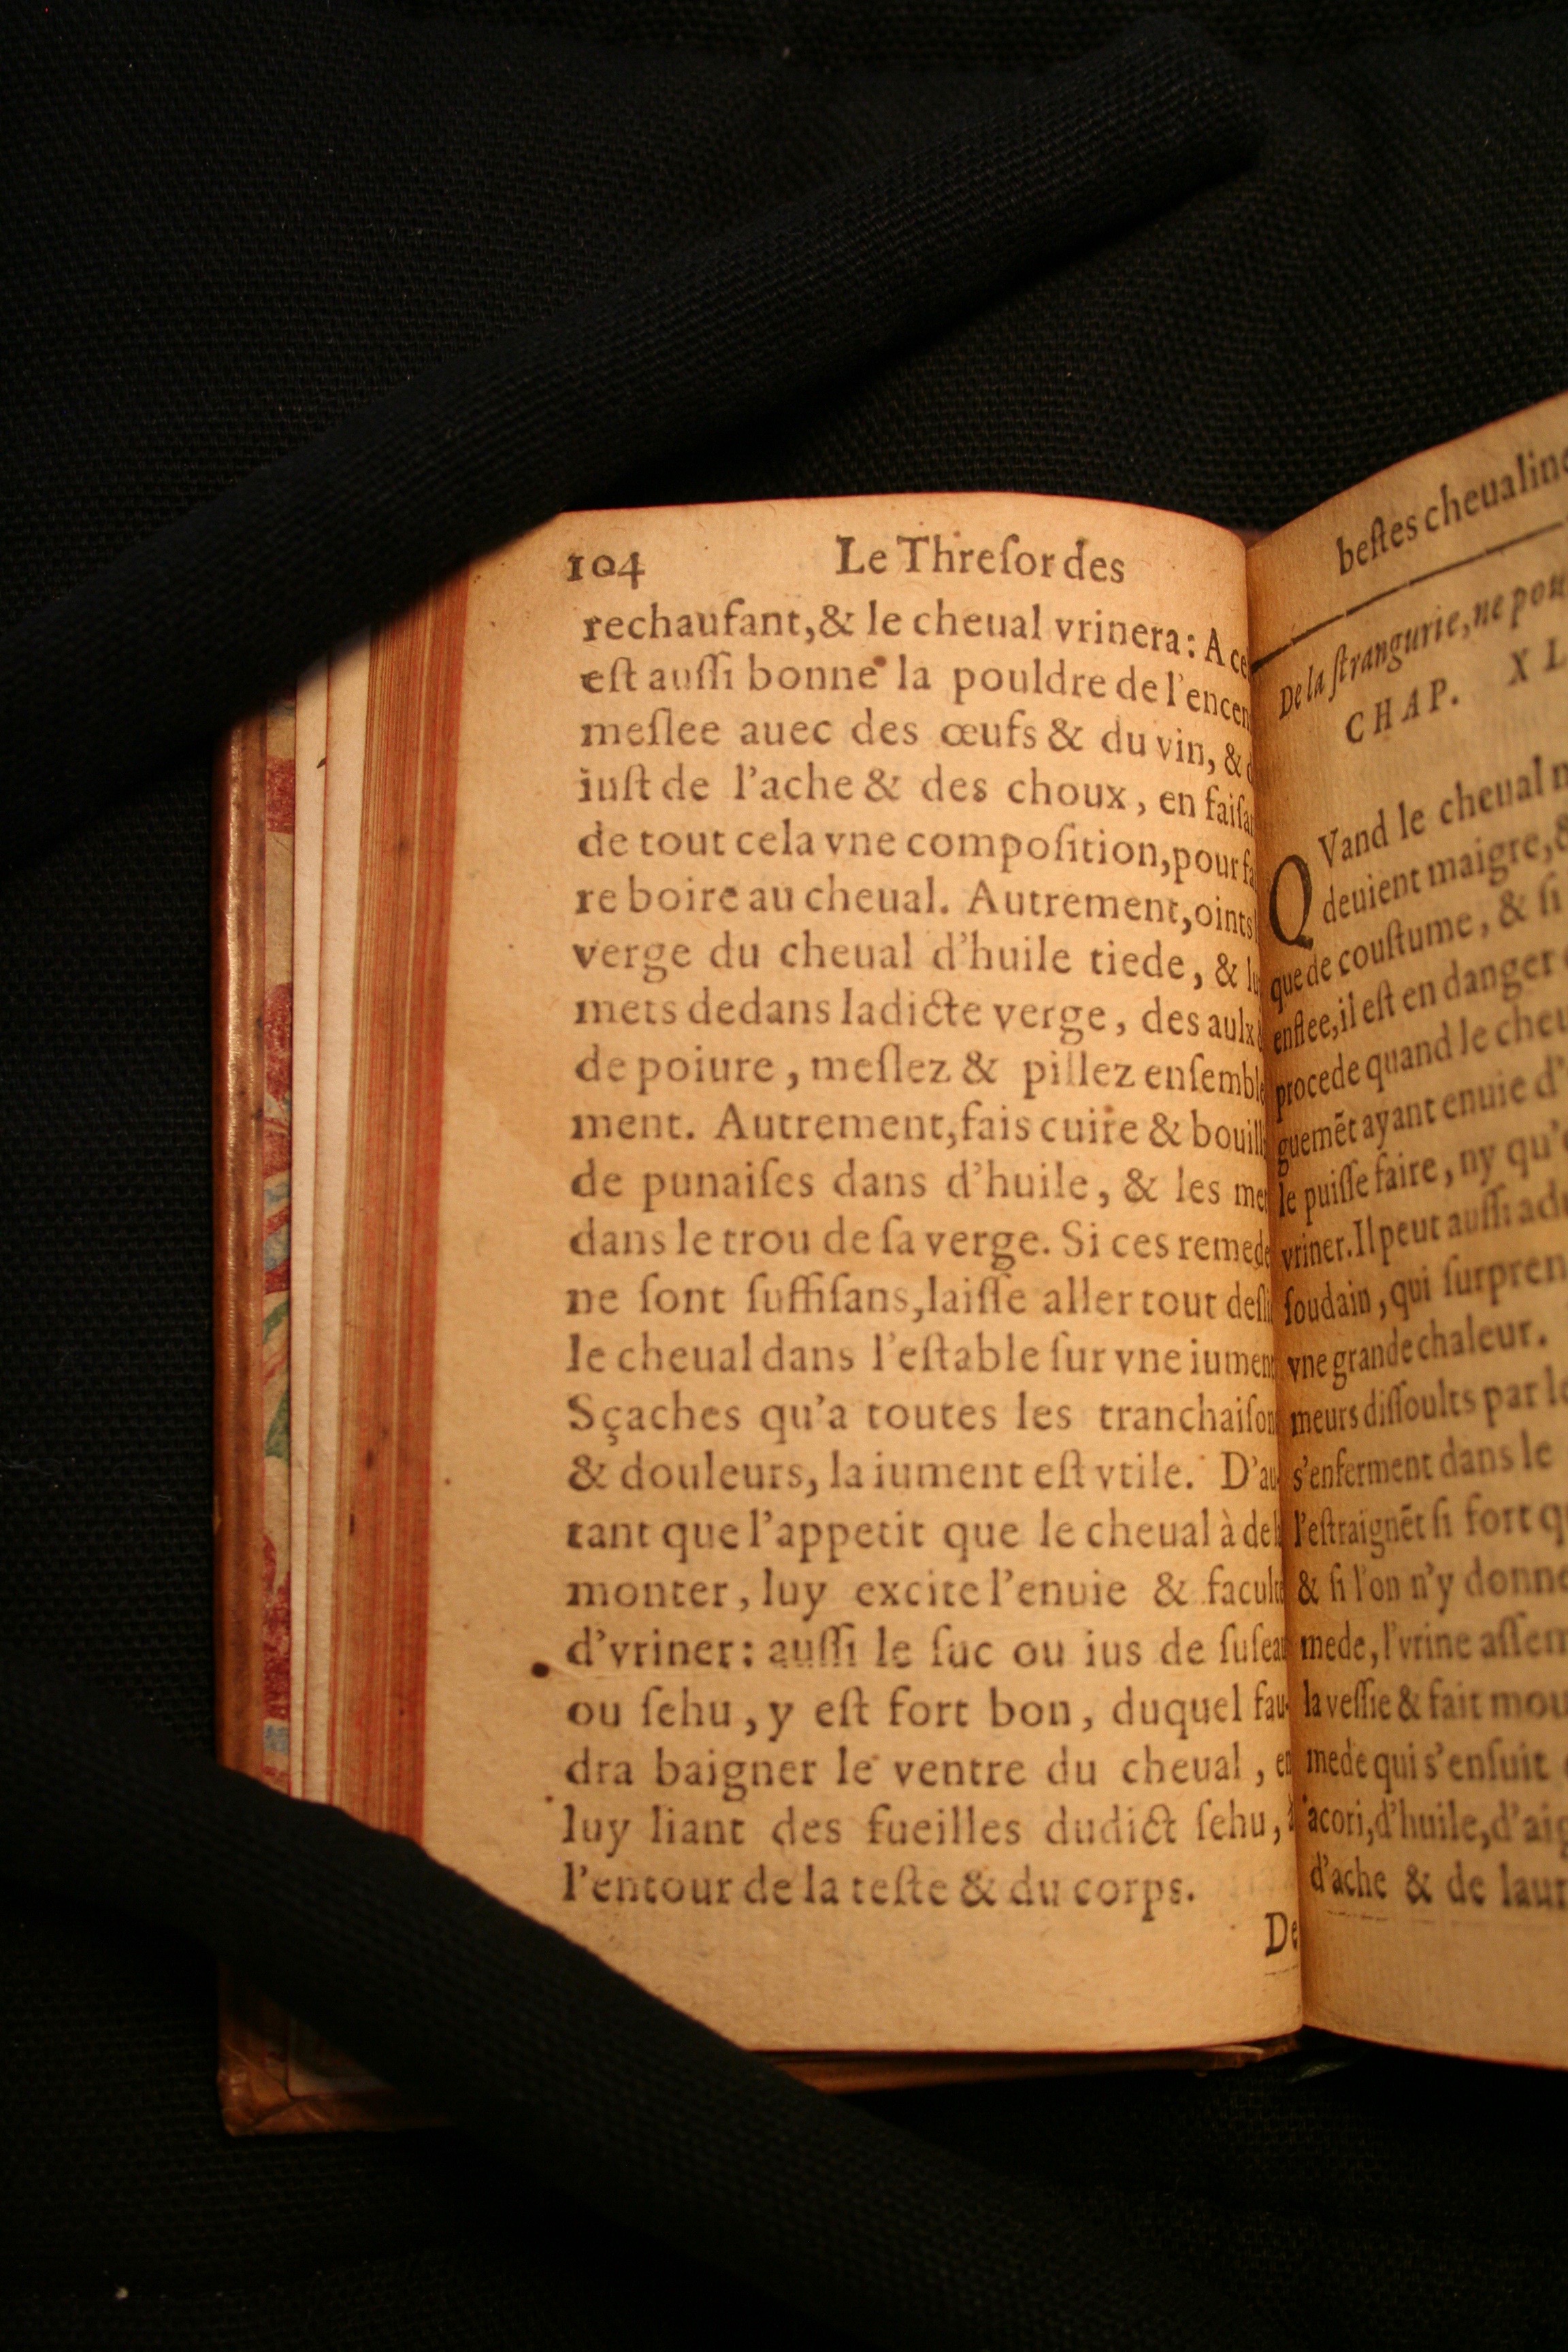 104 Le Threſor des
rechaufant,& le cheual vrinera: A ce
eſt auſſi bonne la pouldre de l'encen
meſlee auec des œufs & du vin, &
iuſt de l'ache & des choux, en faiſa
de tout cela vne compoſition, pour fa
re boire au cheual. Autrement, oints
verge du cheual d'huile tiede, & lu
mets dedans ladicte verge, des aulx
de poiure, meſlez & pillez enſemble
ment. Autrement, fais cuire & bouill
de punaiſes dans d'huile, & les met
dans le trou de ſa verge. Si ces remede
ne ſont ſuffiſans, laiſſe aller tout deſl
le cheual dans l'eſtable ſur vne iument
Sçaches qu'a toutes les tranchaiſons
& douleurs, la iument eſt vtile. D'au-
tant que l'appetit que le cheual à de la
monter, luy excite l'enuie & faculté
d'vriner: auſſi le ſuc ou ius de ſuſeau
ou ſehu, y eſt fort bon, duquel fau-
dra baigner le ventre du cheual, en
luy liant des fueilles dudict ſehu, à
l'entour de la teſte & du corps.
De
beſtes cheualine
De la ſtrangurie, ne pou
CHAP. XL
QVand le cheual n
deuient maigre, &
que de couſtume, & ſi
enflee, il eſt en danger
procede quand le cheu
guemẽt ayant enuie d'
le puiſſe faire, ny qu'
vriner. Il peut auſſi ad
ſoudain, qui ſurpren
vne grande chaleur.
meurs diſſoults par le
s'enferment dans le
l'eſtraignẽt ſi fort q
& ſi l'on n'y donne
mede, l'vrine aſſem
la veſſie & fait mou
mede qui s'enſuit
acori, d'huile, d'aig
d'ache & de laur